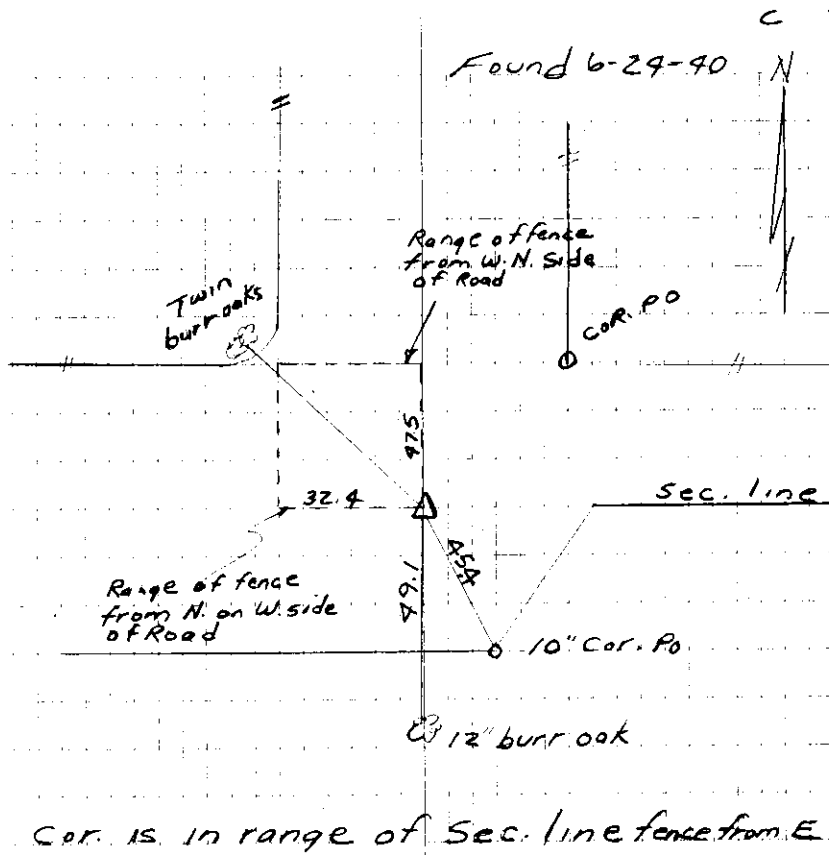 C
Found 6-24-40
N
Range of fence
from W. N. Side
of Road
Twin
burr oaks
COR. PO
475
32.4
Sec. line
454
49.1
Range of fence
from N. on W. side
of Road
10" Cor. Po
12" burr oak
Cor. is in range of Sec. line fence from E